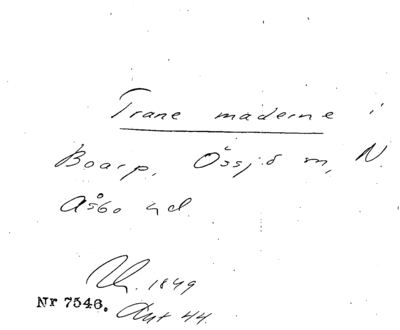 Trane maderne i
Boarp, Össjö m, N.
Åsbo hd.
Uh. 1849
Nr 7546. Ant 44.